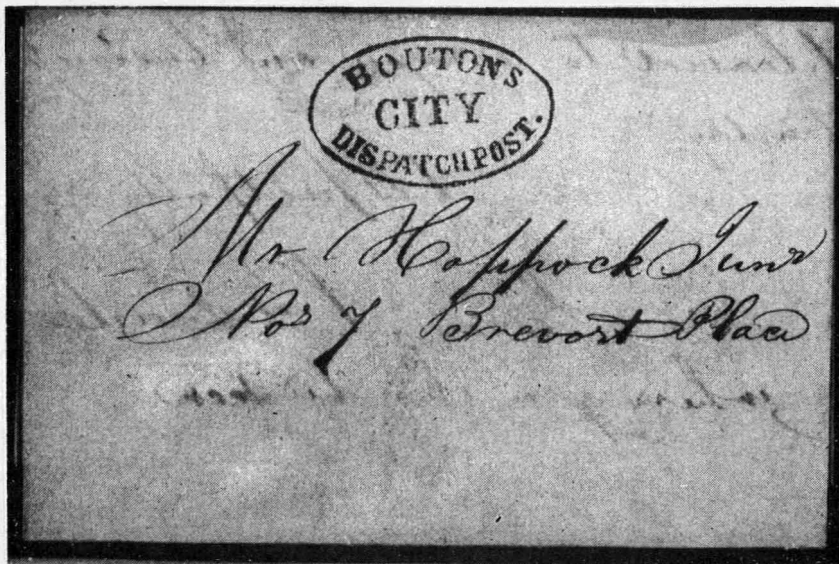 BOUTONS
CITY
DISPATCH POST.
Mr Hoppock Junr
No 7 Brevort Place